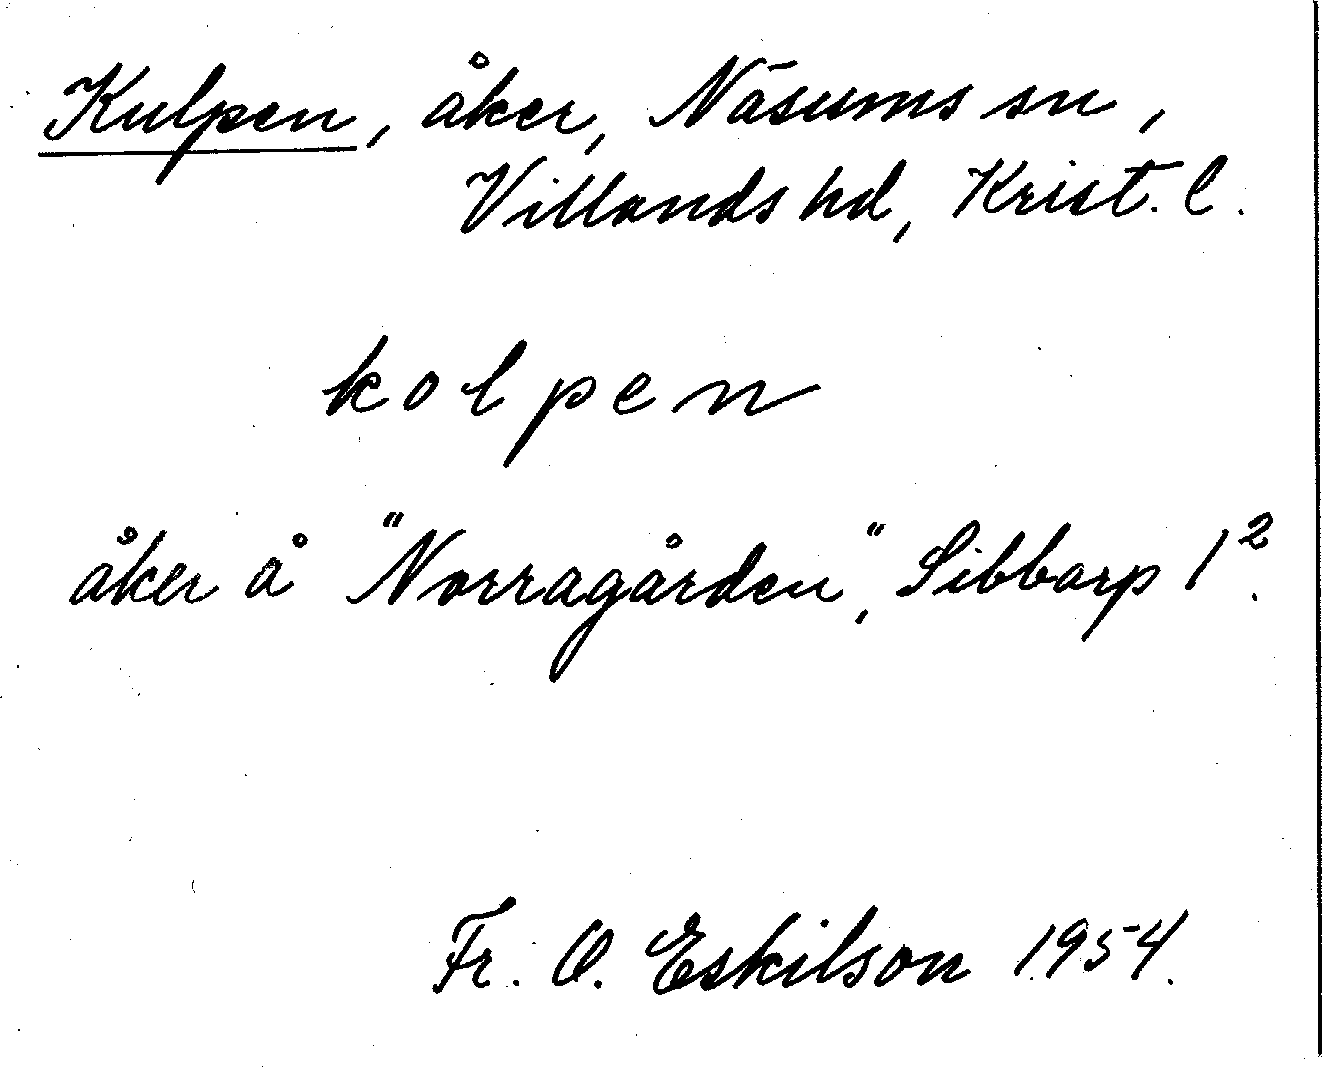 Kulpen, åker, Näsums sn,
Villands hd, Krist. l.
kolpen
åker å "Norragården", Sibbarp 1².
Fr. O. Eskilson 1954.